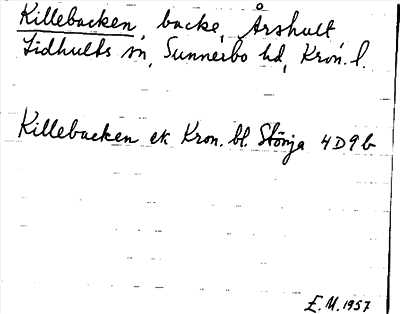 Killebacken, backe, Årshult
Lidhults sn, Sunnerbo hd, Kron. l.
Killebacken ek. Kron. bl. Stönja 4D9b
E.M. 1957